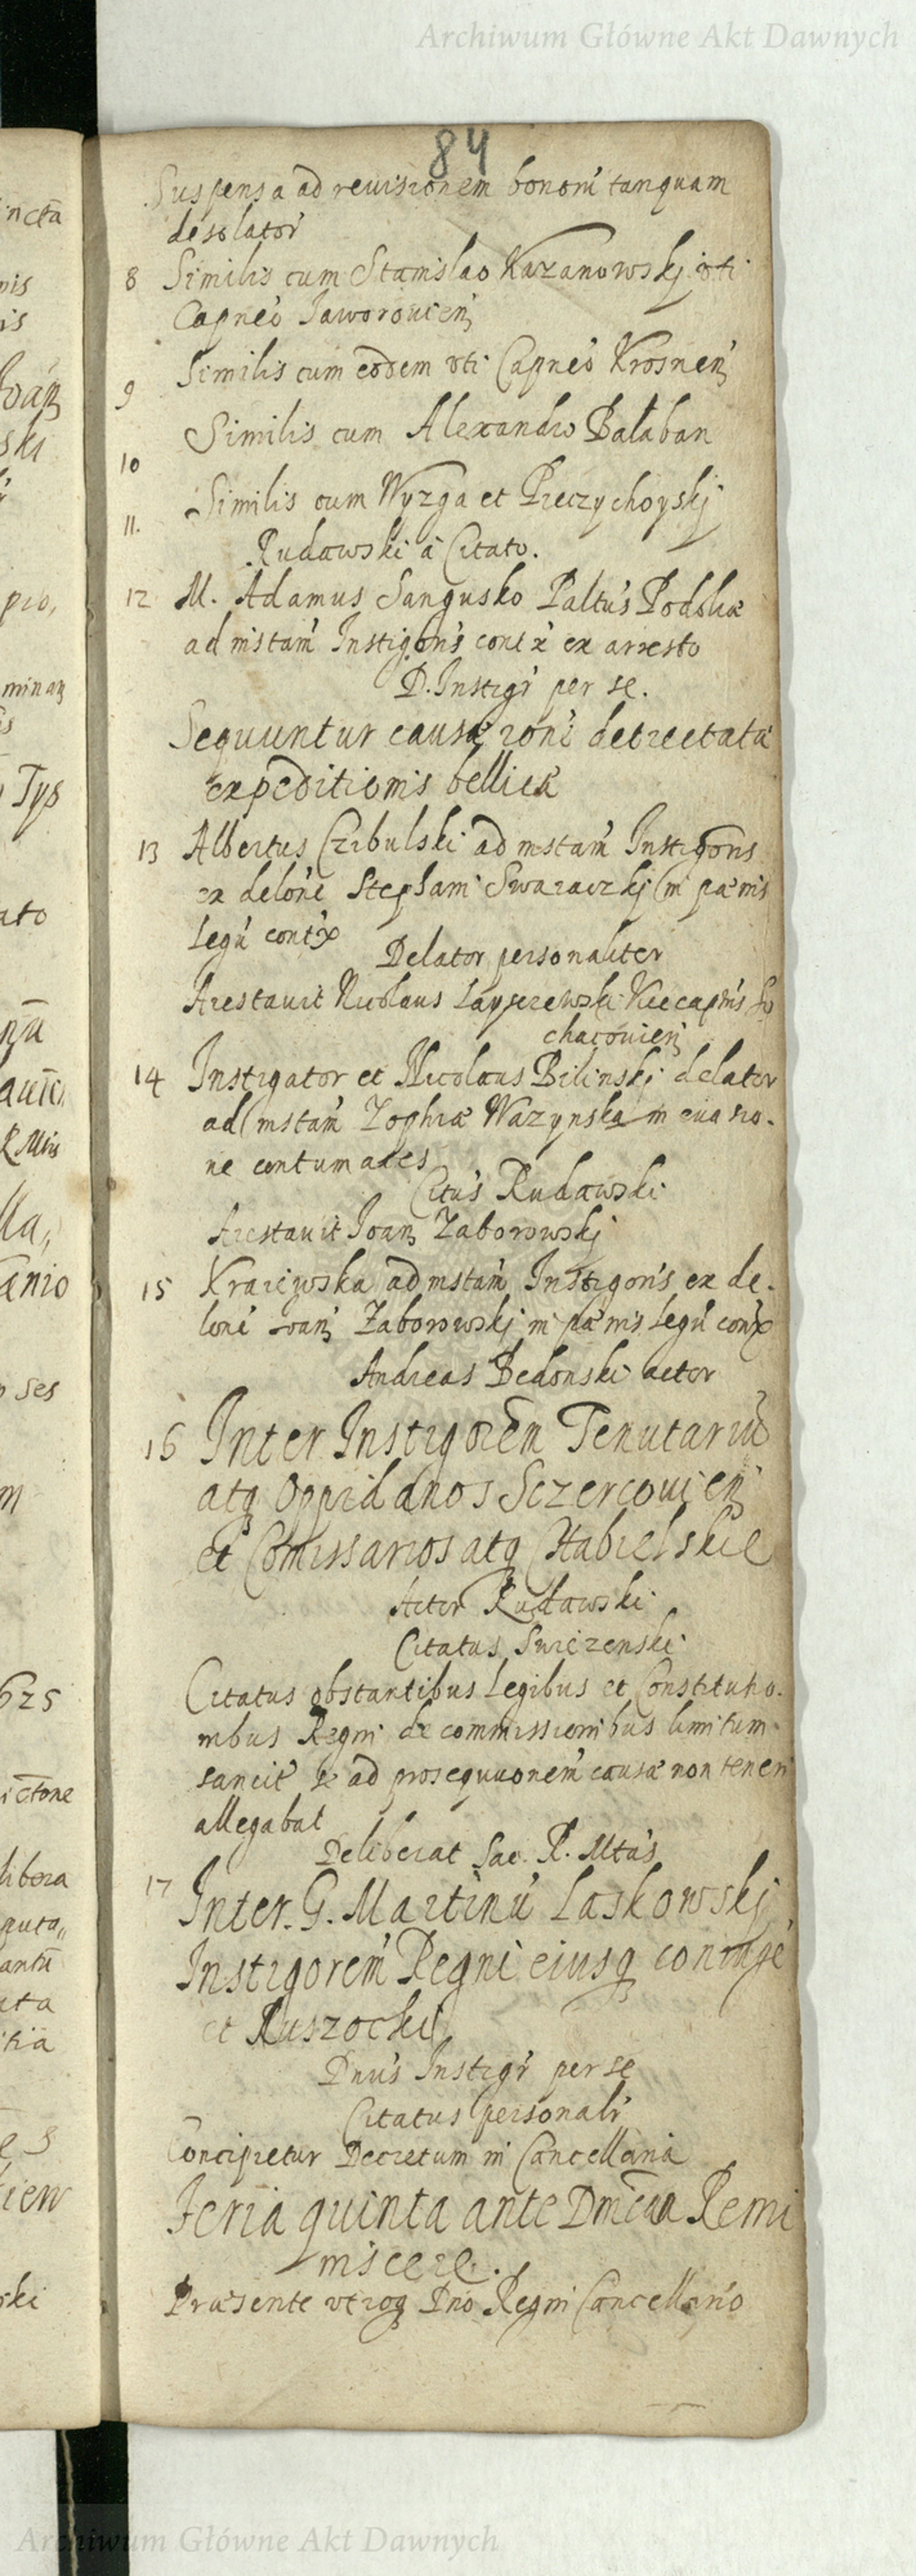 Archiwum Główne Akt Dawnych
84
Suspensa ad revisionem bonorũ tanquam
desolator
8 Similis cum Stanislao Kazanowskj vti
Capneo Jaworouien
9 Similis cum eodem vti Capneo Krosnen
10 Similis cum Alexandro Bałaban
11. Similis cum Wyzga et Preczychoyskj
Rudawski a Citato.
12 M. Adamus Sangusko Paltus Podoliæ
ad instam Instigoris contr ex arresto
D. Instigr per se.
Sequuntur causæ roni detrectatæ
expeditionis bellicæ
13 Albertus Czibulski ad instam Instigoris
ex delone Stephani Swaraczkj in pænis
Legũ contx
Delator personaliter
Arestauit Nicolaus Vicecapns So
chacouien
14 Instigator et Nicolaus Bilinskj delator
ad instam Zophiæ Wazynska in euasio-
ne contumaces
Citus Rudawski
Arestauit Joan Zaborowskj
15 Kraiewska ad instam Instigoris ex de-
lone Joan Zaborowskj in pænis Legũ contx
Andreas Bedonski actor
16 Inter Instigorem Tenutariũ
atq Oppidanos Sczercouien
et Comissarios atq
Actor Rudawski
Citatus Swiezenski
Citatus obstantibus Legibus et Constitutio-
nibus Regni de commissionibus limitum
sancit se ad prosequuonem causæ non teneri
allegabat
Deliberat Sac. R. Mtas
17 Inter G. Martinũ Laskowskj
Instigorem Regni eiusq coniuge
et Ruszocki
Dnus Instigr per se
Citatus personalr
Concipietur Decretum in Cancellaria
Feria quinta ante Dmcam Remi
niscere.
Præsente vtroq Dno Regni Cancellario
Archiwum Główne Akt Dawnych